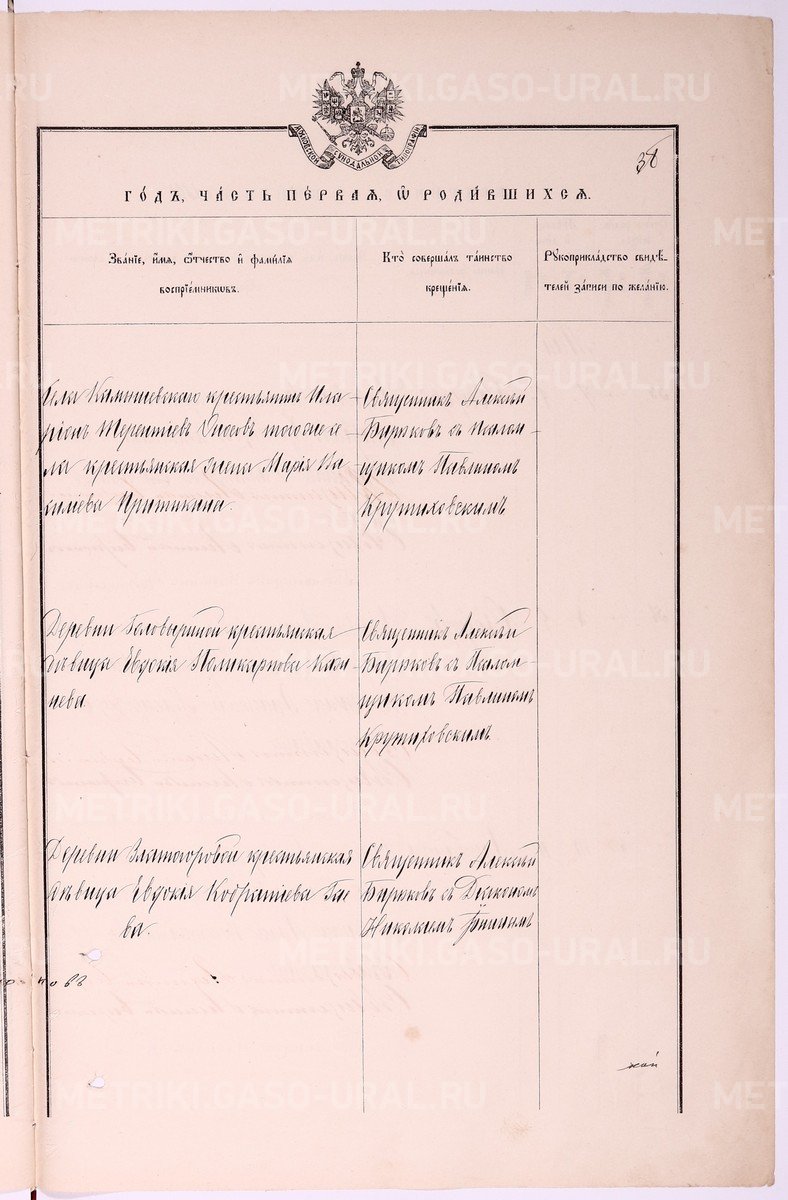 МОСКОВСКОЙ СѴНОДАЛЬНОЙ ТИПОГРАФІИ
38
ГО́ДЪ, ЧА́СТЬ ПЕ́РВАЯ, Ѿ РОДИ́ВШИХСЯ.
Зва́нїе, и҆́мя, ѻ҆́тчество и҆ фами́лїя
воспрїе́мникѡвъ.
Кто̀ соверша́лъ та́инство
креще́нїя.
Рꙋкоприкла́дство свидѣ́-
телей за́писи по жела́нїю.
Села Камышевскаго крестьянинъ Ила-
ріонъ Терентіевъ Оносовъ того же се-
ла крестьянская жена Марія Ва-
силіева Притикина.
Священникъ Алексѣй
Бирюковъ съ Псалом-
щикомъ Павлиномъ
Крутиховскимъ
Деревни Головыриной крестьянская
дѣвица Евдокія Поликарпова
Священникъ Алексѣй
Бирюковъ съ Псалом-
щикомъ Павлиномъ
Крутиховскимъ.
Деревни Златогоровой крестьянская
дѣвица Евдокія Кодратіева Гае-
ва.
Священникъ Алексѣй
Бирюковъ съ Діакономъ
Николаемъ
METRIKI.GASO-URAL.RU